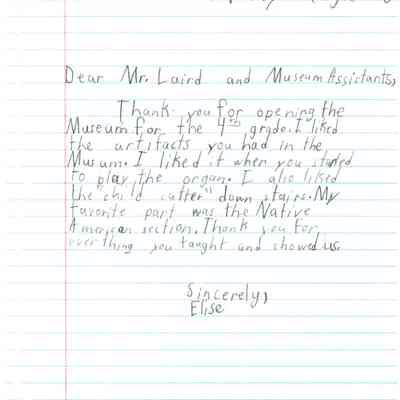 Dear Mr. Laird and Museum Assictants,
Thank you for opening the
Museum for the 4th grade. I liked
the artifacts you had in the
Musum. I liked it when you started
to play the organ. I also liked
the "child catter" down stairs. My
favorite part was the Native
American section. Thank you for
everthing you taught and showed us.
Sincerely,
Elise